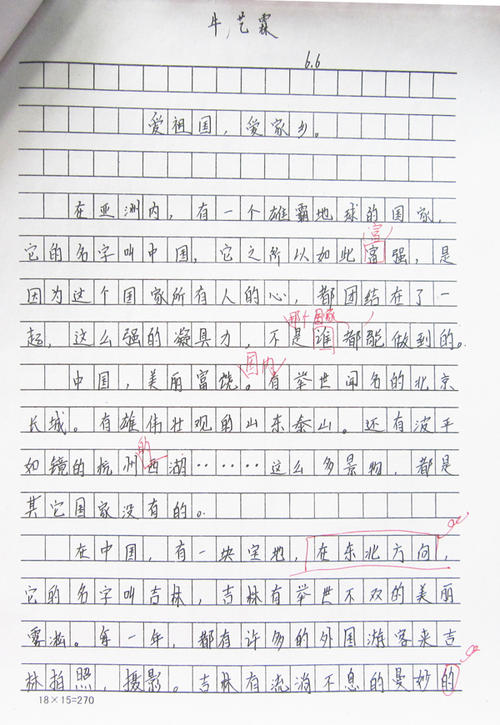 牛艺霖
6.6
爱祖国，爱家乡。
在亚洲内，有一个雄霸地球的国家，
富
它的名字叫中国，它之所以如此富强，是
因为这个国家所有人的心，都团结在了一
那个国家
起，这么强的凝具力，不是谁都能做到的。
国内
中国，美丽富饶。有举世闻名的北京
长城。有雄伟壮观的山东泰山。还有波平
的
如镜的杭州西湖……这么多景物，都是
其它国家没有的。
在中国，有一块宝地，在东北方向，
它的名字叫吉林，吉林有举世不双的美丽
雾凇。每一年，都有许多的外国游客来吉
林拍照，摄影。吉林有流淌不息的曼妙的
18×15=270